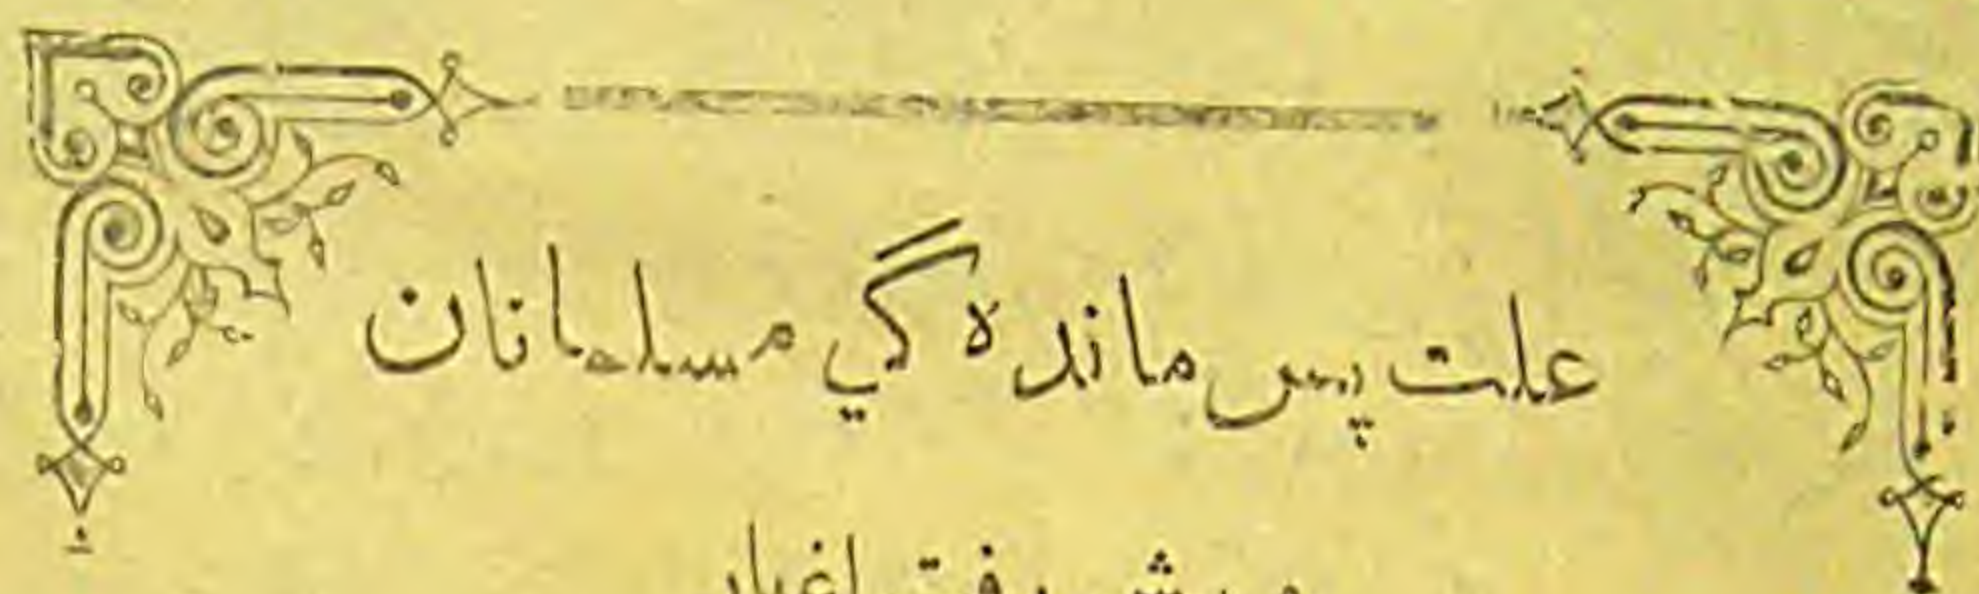 علت پس ماندہ گي مسلمانان
و پیش رفت اغیار